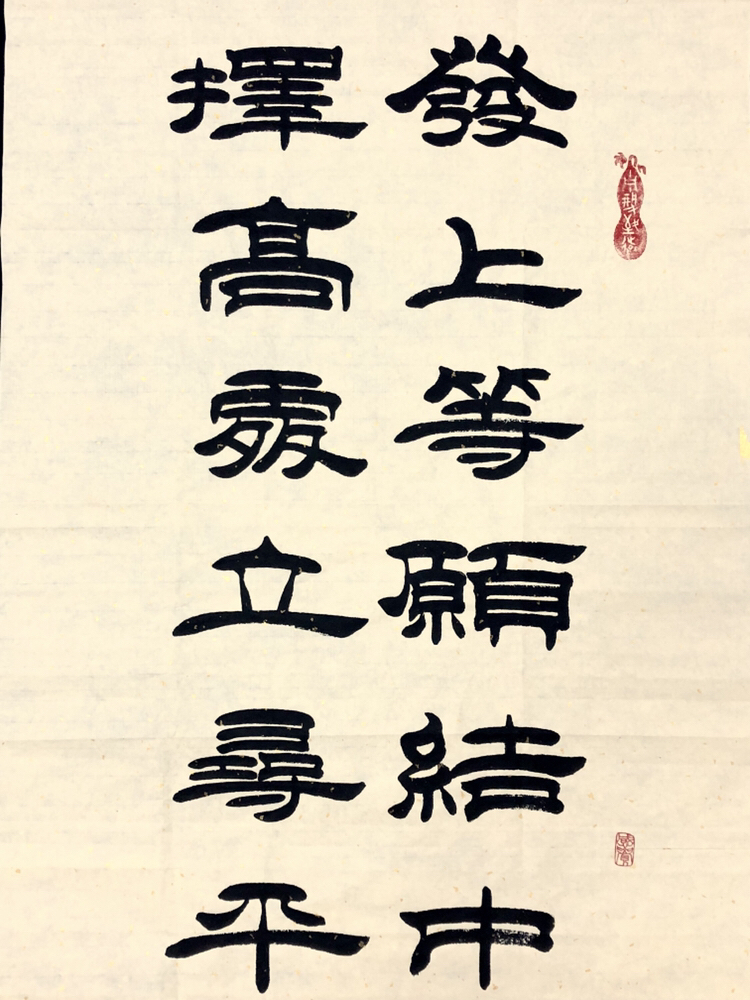 發上等願結中
擇髙處立尋平